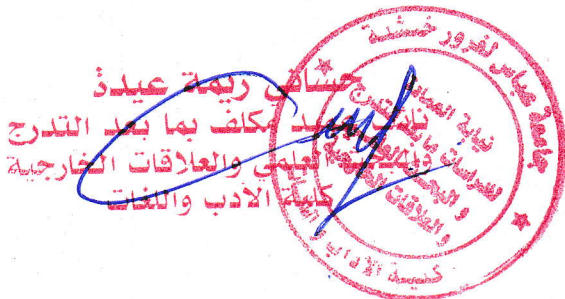 حساني ريمة عيدة
نائب عميد مكلف بما بعد التدرج
والبحث العلمي والعلاقات الخارجية
كلية الادب واللغات
جامعة عباس لغرور خنشلة
نيابة العمادة
للدراسات ما بعد التدرج
و البحث
و العلاقات
كلية الآداب و